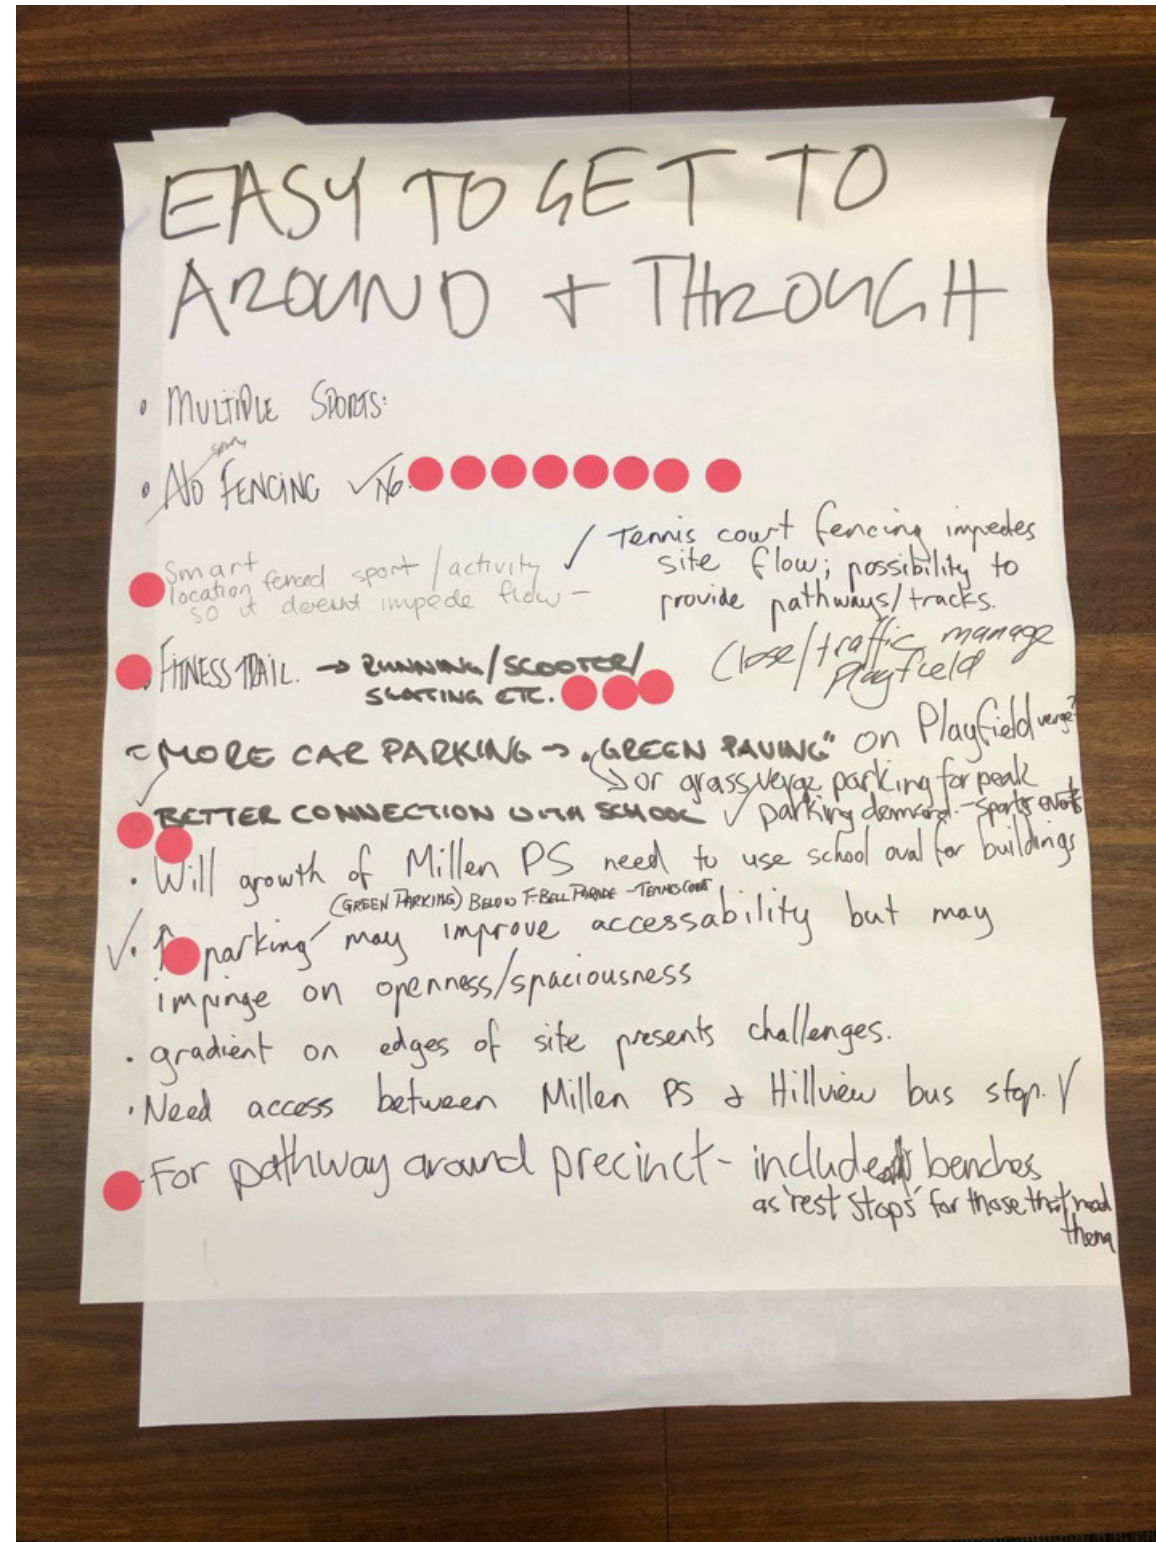 EASY TO GET TO
AROUND + THROUGH
• MULTIPLE SPORTS:
• No FENCING ✓ No.
Smart
location fenced sport / activity
so it doesnt impede flow –
✓ Tennis court fencing impedes
site flow; possibility to
provide pathways/tracks.
Close/traffic manage
Playfield
• FITNESS TRAIL. → RUNNING/SCOOTER/
SCOTING ETC.
- MORE CAR PARKING → "GREEN PAVING" on Playfield verge?
↳ or grass verge parking for peak
parking demand - sports events
BETTER CONNECTION WITH SCHOOL ✓
• Will growth of Millen PS need to use school oval for buildings
(GREEN PARKING) BELOW F-BELL PARADE - TENNIS COURT
✓ • ↑ parking may improve accessability but may
impinge on openness/spaciousness
• gradient on edges of site presents challenges.
• Need access between Millen PS & Hillview bus stop. ✓
- For pathway around precinct - include benches
as 'rest stops' for those that need
them